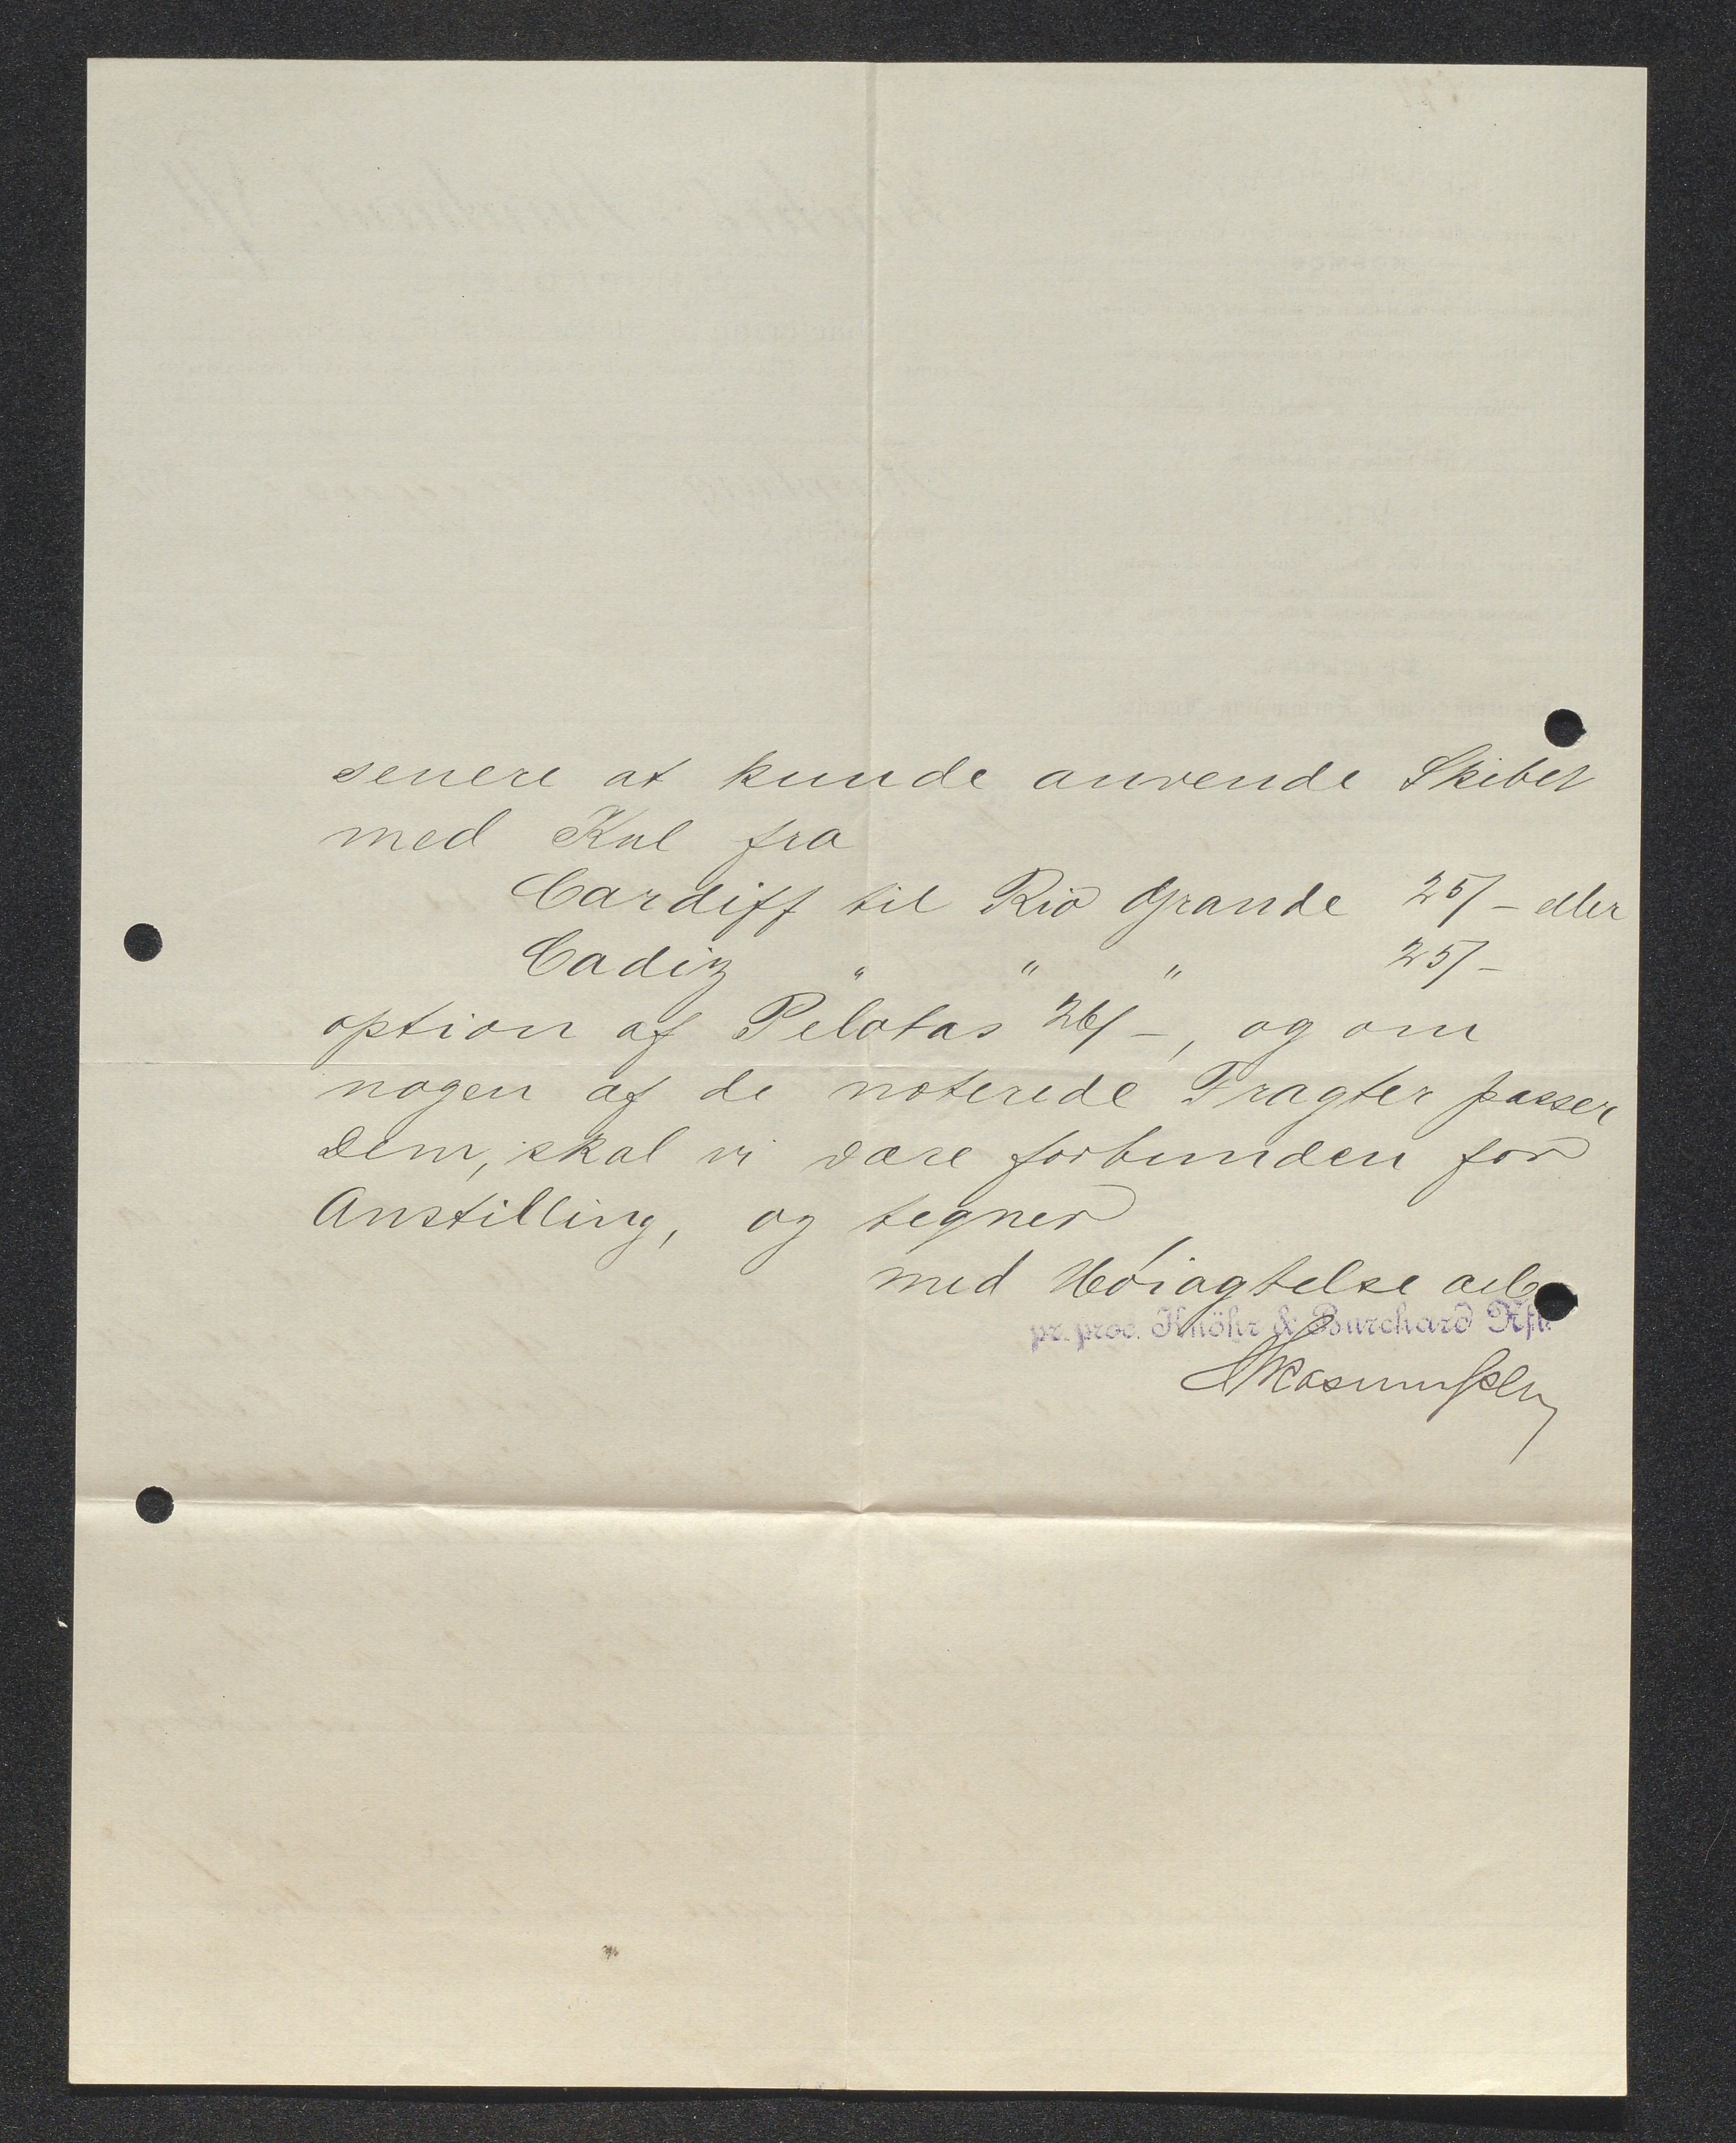 senere at kunde anvende Skibet
med Kul fra
Cardiff til Rio Grande 25/- eller
Cadiz " " " 25/-
option af Pelotas 26/-, og om
nogen af de noterede Fragter passer
Dem, skal vi være forbunden for
Anstilling, og tegner
med Höiagtelse
pr. proc. Knöhr & Burchard Nfl.
Rasmussen